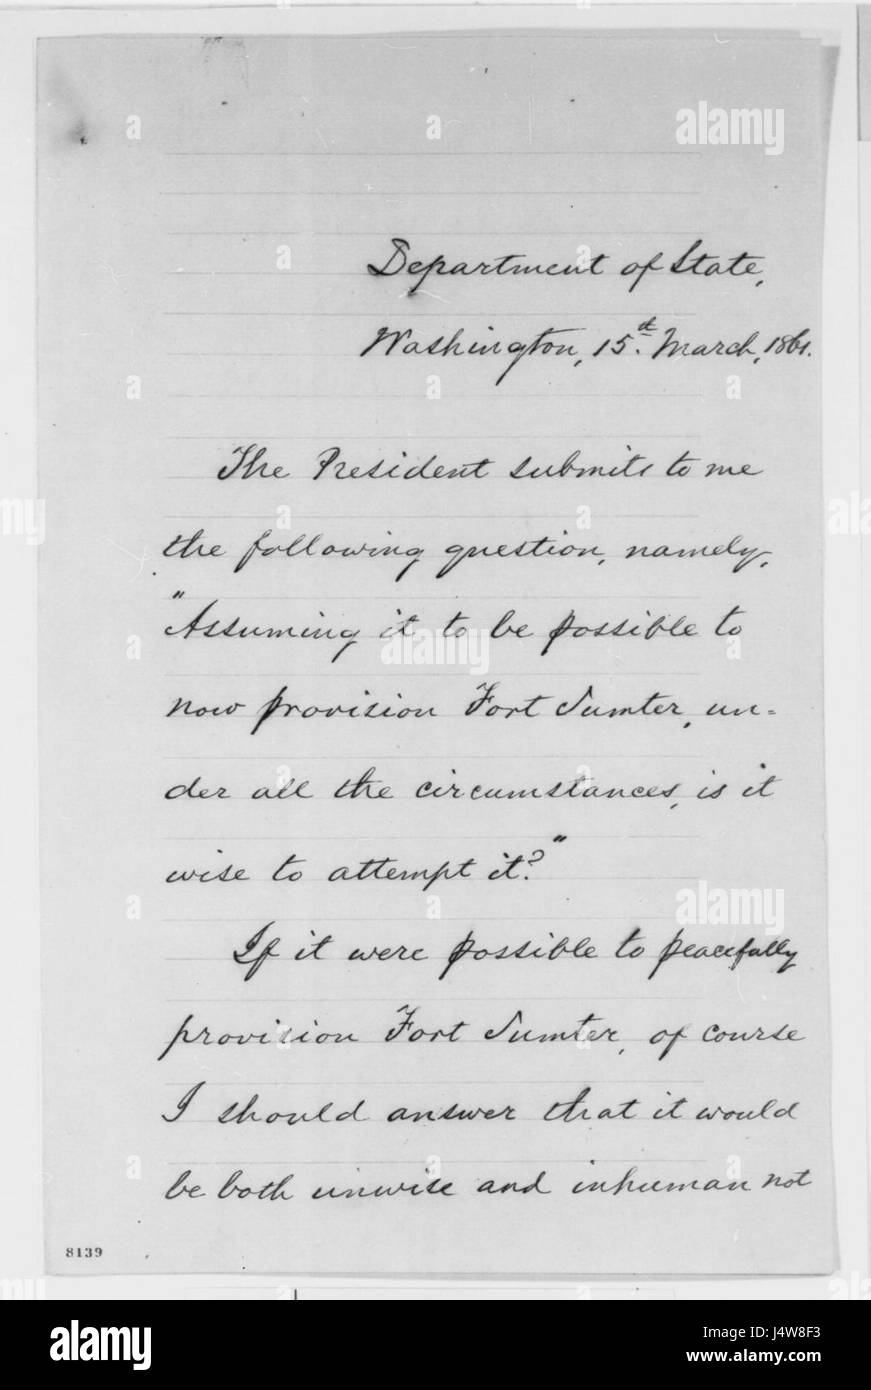 Department of State,
Washington, 15th March, 1861.
The President submits to me
the following question, namely,
"Assuming it to be possible to
now provision Fort Sumter, un-
der all the circumstances, is it
wise to attempt it?"
If it were possible to peacefully
provision Fort Sumter, of course
I should answer that it would
be both unwise and inhuman not
8139
alamy
alamy
alamy
a alamy
www.alamy.com
Image ID: J4W8F3